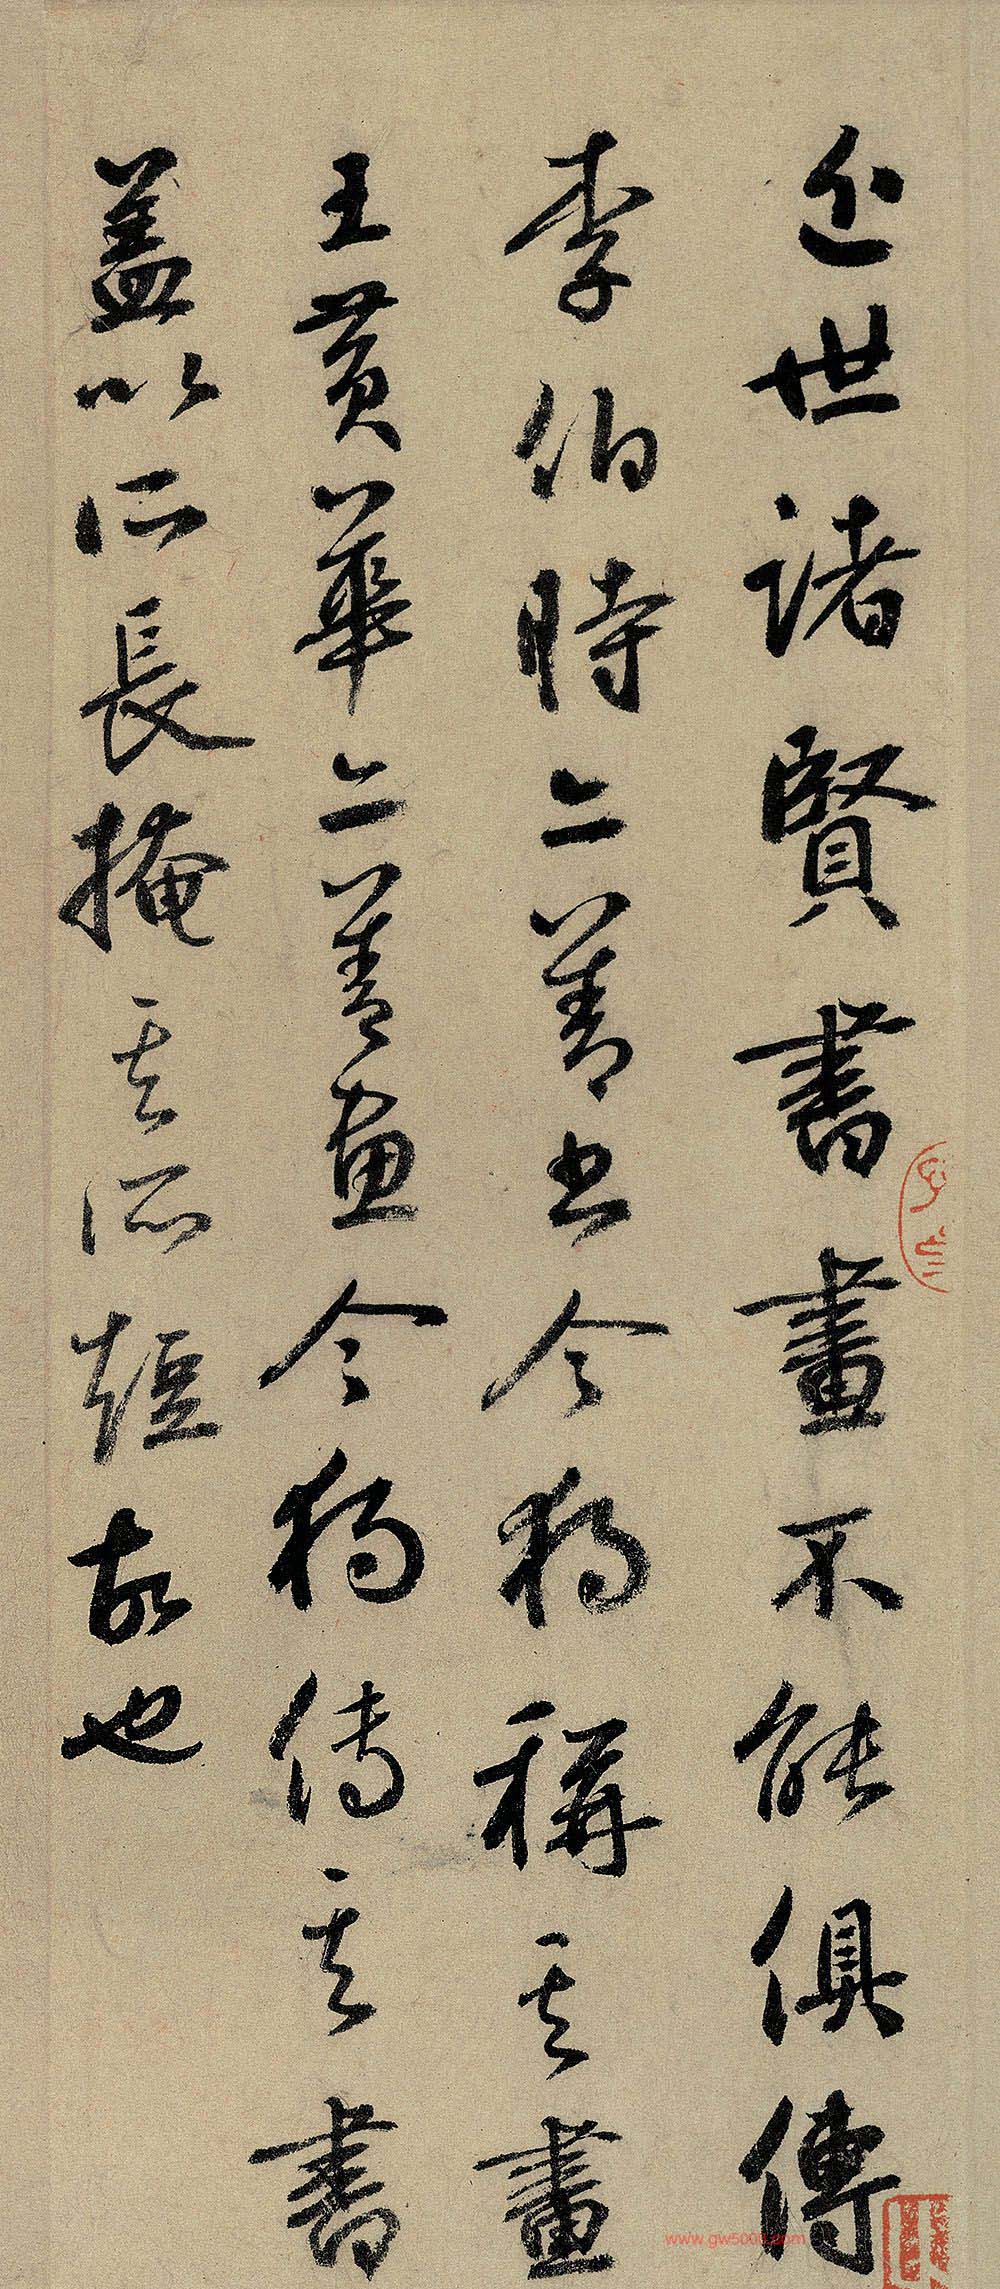 近世諸賢書畫不能俱傳
李伯時亦善書今獨稱其畫
王黃華亦善畫今獨傳其書
蓋以所長掩其所短故也
www.gw5000.com